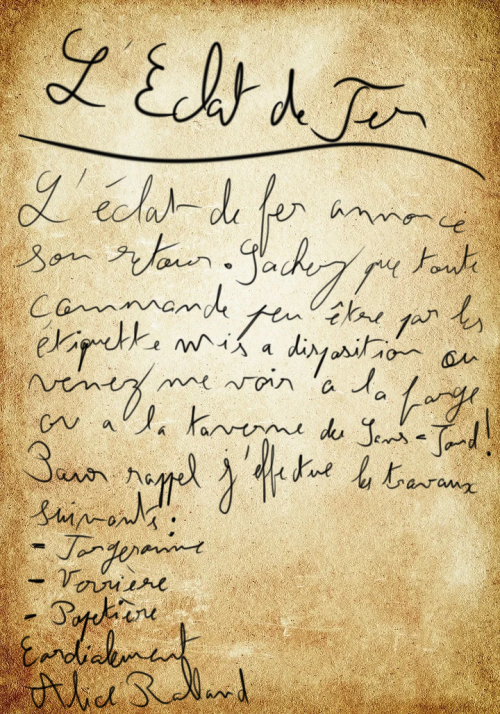 L'Éclat de Fer
L'éclat de fer annonce
son retour. Sachez que toute
commande peu être par les
étiquette mis a disposition ou
venez me voir a la forge
ou a la taverne du Sans-Fond!
Pour rappel j'effectue les travaux
suivants:
- Forgeronnie
- Verrière
- Papetière
Cordialement
Alice Rolland